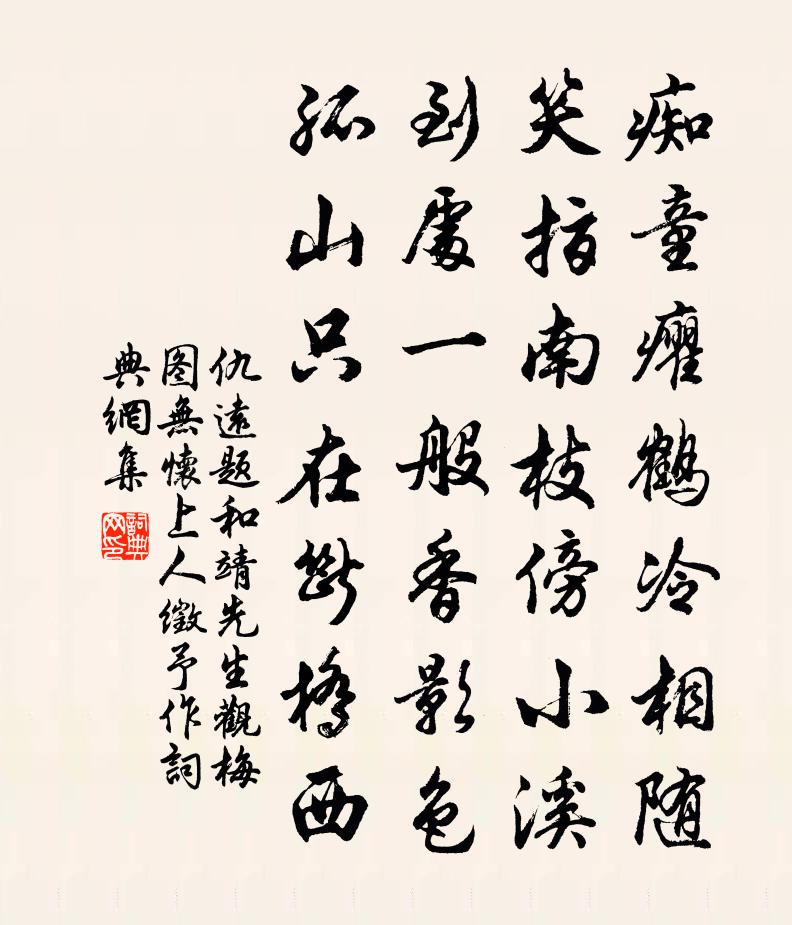 痴童癯鶴冷相随
笑指南枝傍小溪
到處一般香影色
孤山只在斷橋西
仇遠題和靖先生觀梅
图無懷上人徵予作詞
典網集
詞典
网印